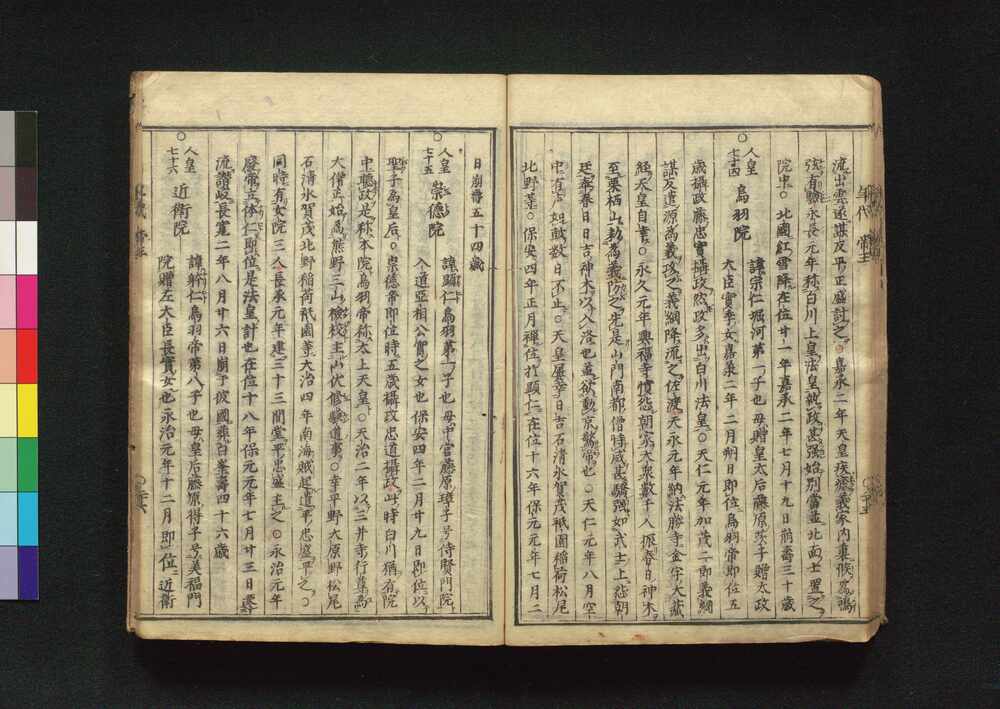 流出雲遠謀反平正盛討之○嘉承二年天皇疾源義家内裏候為鳴
弦有驗永長元年称白川上皇法皇就政甚强始別當並北面士置之
院中○北國紅雪降在位廿一年嘉承二年七月十九日崩壽三十歳
○人皇七十四 鳥羽院 諱宗仁堀河第一子也母贈皇太后藤原苡子贈太政
大臣實季女嘉承二年二月朔日即位鳥羽帝即位五
歳攝政藤忠實攝政院政多出白川法皇○天仁元年加茂二郎義綱
謀反遣源為義攻之義綱降流之佐渡天永元年納法勝寺金字大藏
經天皇自書○永久元年興福寺憤怨朝家大衆數千人振春日神木
至栗栖山勅為義防之先是山門南都僧恃威甚驕强如武士上怨朝
廷奉春日日吉神木以入洛也蓋欲動京驚帝也○天仁元年八月空
中有声如鼓数日不止○天皇屢幸日吉石清水賀茂祇園稲荷松尾
北野等○保安四年正月禅位於顕仁在位十六年保元元年七月二
日崩壽五十四歳
○人皇七十五 崇德院 諱顕仁鳥羽第一子也母中宮藤原璋子号待賢門院
入道亞相公實之女也保安四年二月十九日即位以
聖子為皇后○崇德帝即位時五歳攝政忠通攝政此時白川猶有院
中聽政是称本院鳥羽帝称太上天皇○天治二年以三井寺行尊為
大僧正始為熊野三山檢校主山伏修驗道事○幸平野大原野松尾
石清水賀茂北野稲荷祇園等大治四年南海賊起遣平忠盛平之○
同時有女院三人長承元年建三十三間堂平忠盛主之○永治元年
廢帝立体仁即位是法皇計也在位十八年保元元年七月廿三日遷
流讃岐長寛二年八月廿六日崩于彼國葬白峯壽四十六歳
○人皇七十六 近衛院 諱躰仁鳥羽帝第八子也母皇后藤原得子号美福門
院贈左大臣長實女也永治元年十二月即位近衛